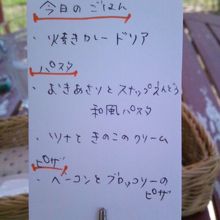 今日のごはん
・焼きカレードリア
パスタ
・よきあさりとスナップえんどう
和風パスタ
・ツナときのこのクリーム
ピザ
・ベーコンとブロッコリーの
ピザ